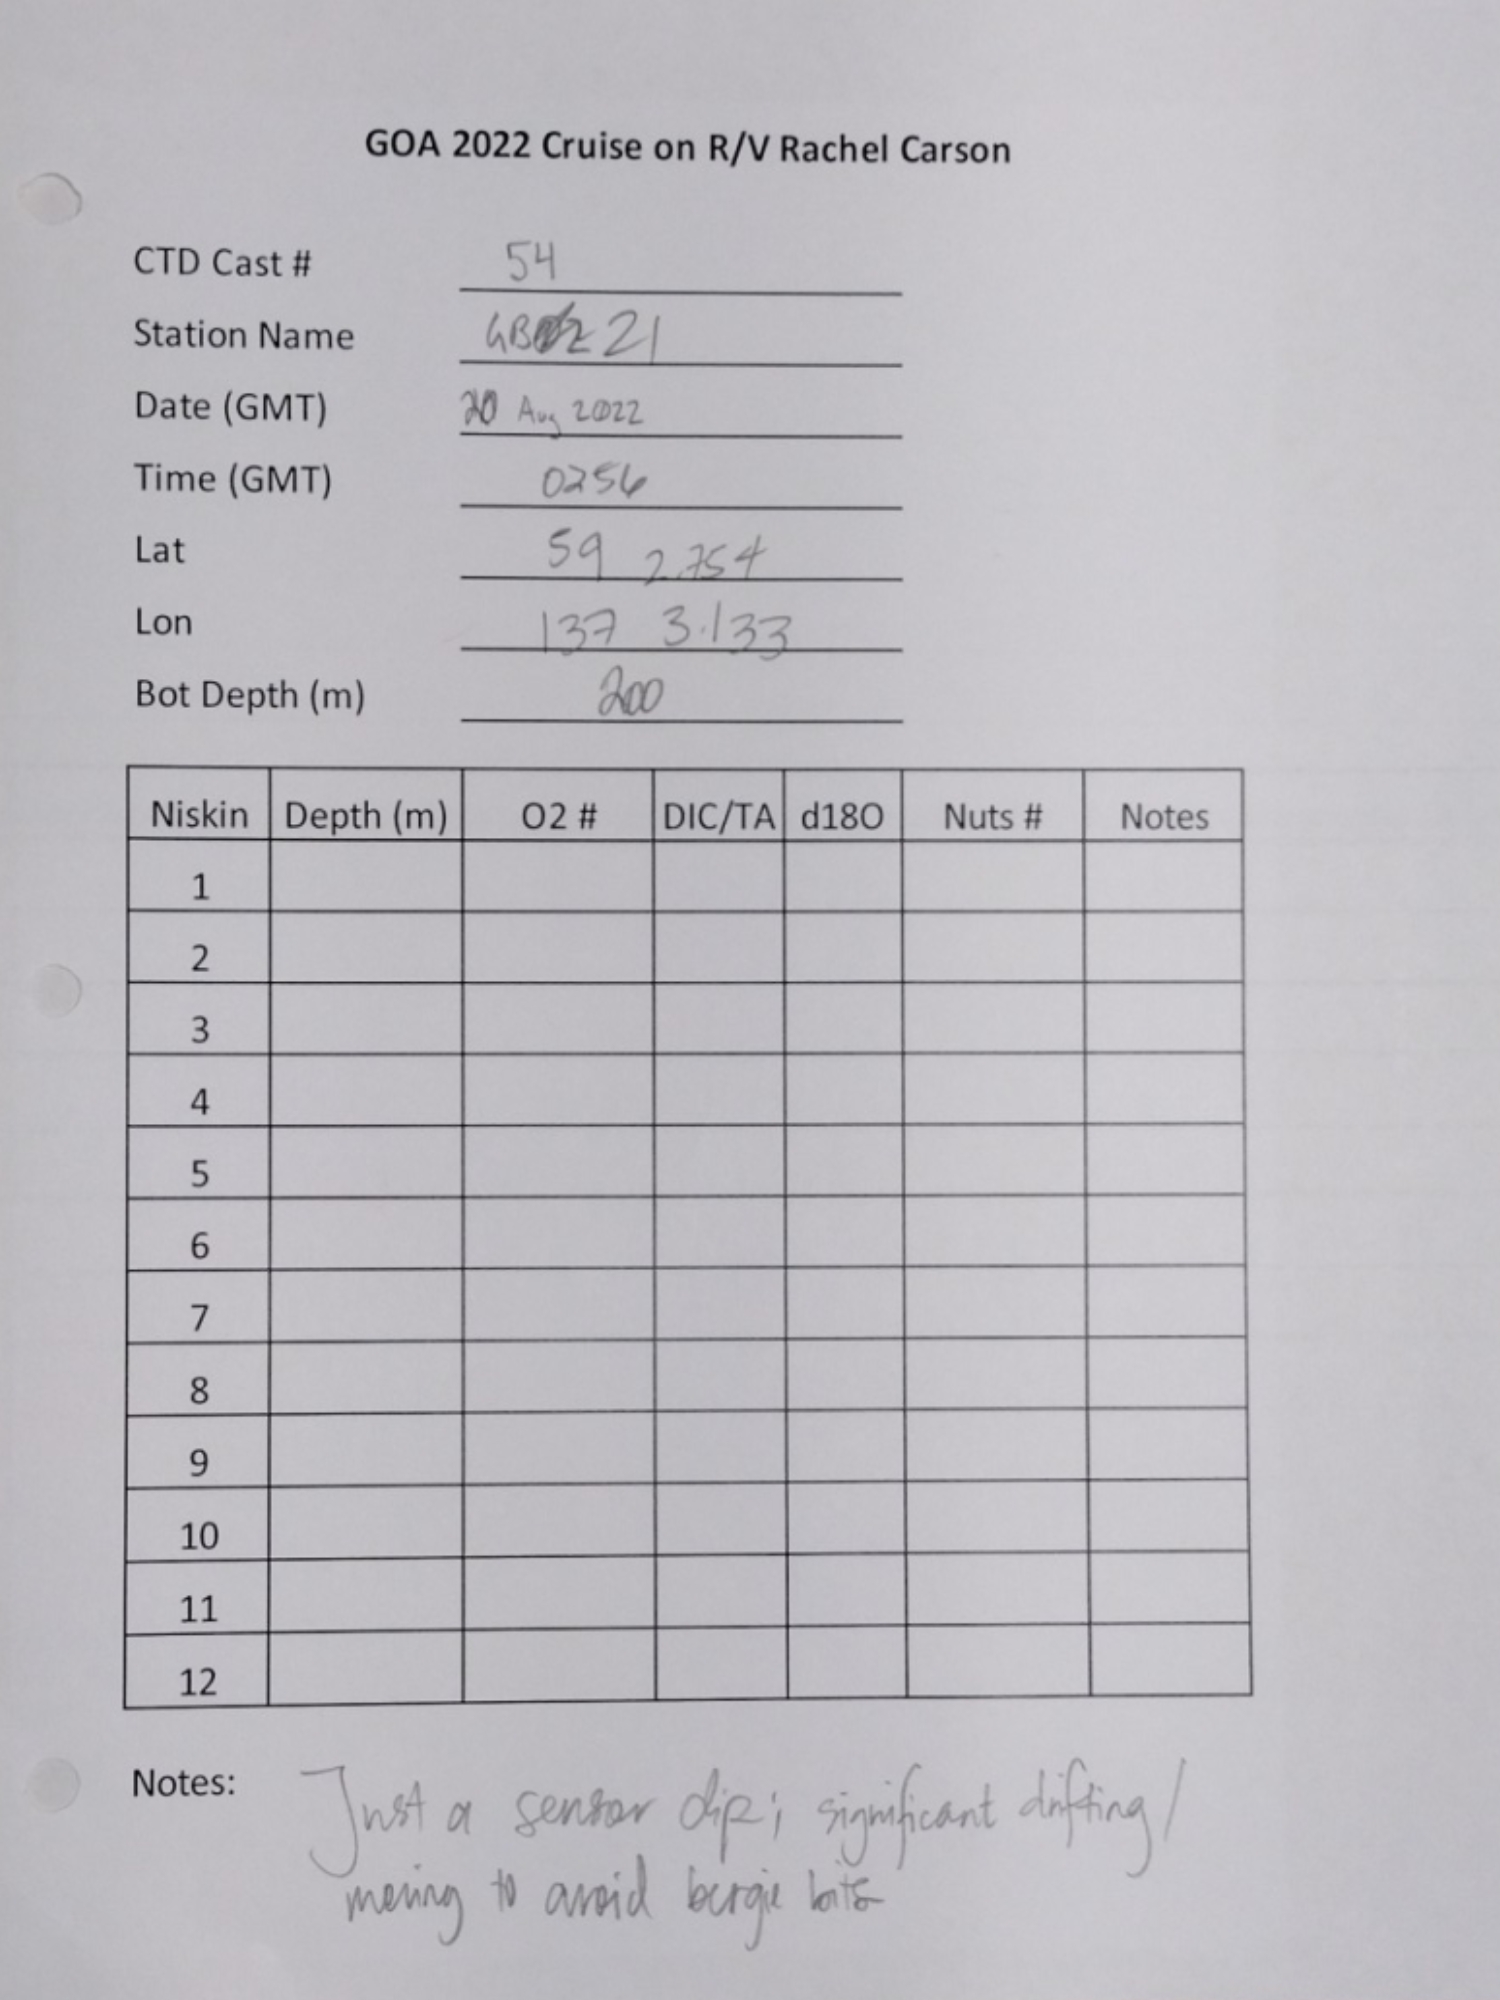 GOA 2022 Cruise on R/V Rachel Carson
CTD Cast # 54
Station Name GB 21
Date (GMT) 20 Aug 2022
Time (GMT) 0256
Lat 59 2.754
Lon 137 3.133
Bot Depth (m) 200
Niskin Depth (m) O2 # DIC/TA d18O Nuts # Notes
1
2
3
4
5
6
7
8
9
10
11
12
Notes: Just a sensor dip; significant drifting/
moving to avoid bergie bits